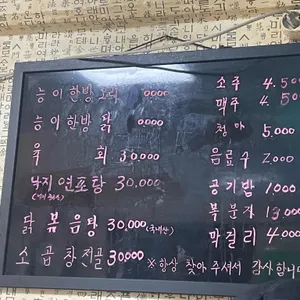 능이한방오리 0000
능이한방 닭 0000
육 회 30,000
낙지연포탕 30,000
닭 볶음탕 30,000 (국내산)
소 곱창전골 30,000
소주 4.50
맥주 4.50
청하 5,000
음료수 2,000
공기밥 1000
복분자 13,00
막걸리 4,000
※항상 찾아 주셔서 감사합니다